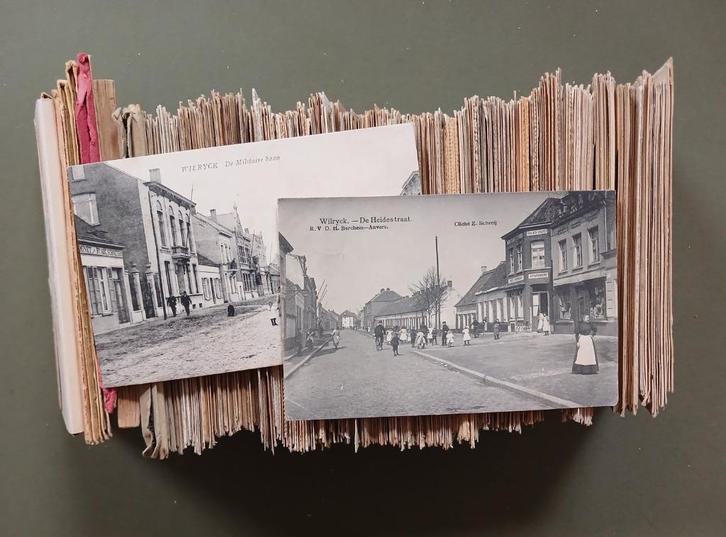 WILRYCK De Militaire baan
Wilryck. — De Heidestraat.
R. V D. H. Berchem—Anvers.
Cliché E. Schreij